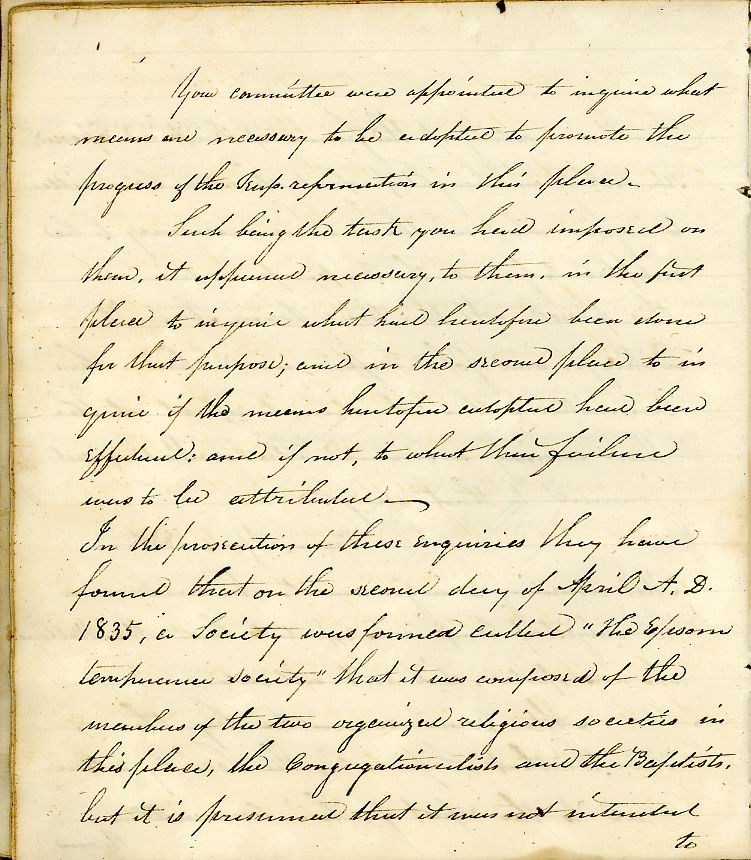 Your committee were appointed to inquire what
means are necessary to be adopted to promote the
progress of the Temp. reformation in this place.
Such being the task you had imposed on
them, it appeared necessary, to them, in the first
place to inquire what had heretofore been done
for that purpose; and in the second place to in
quire if the means heretofore adopted have been
effectual: and if not, to what their failure
was to be attributed.
In the prosecution of these enquiries they have
found that on the second day of April A. D.
1835, a Society was formed called "The Epsom
temperance society" that it was composed of the
members of the two organized religious societies in
this place, the Congregationalists and the Baptists,
but it is presumed that it was not intended
to